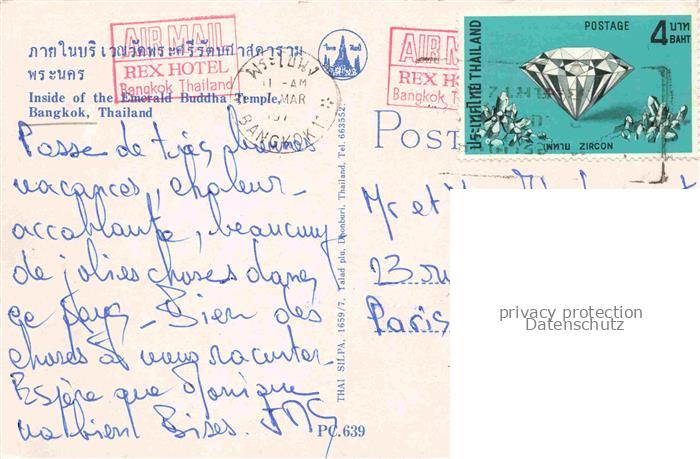 ภายในบริเวณวัดพระศรีรัตนศาสดาราม
พระนคร
Inside of the Emerald Buddha Temple,
Bangkok, Thailand
AIR MAIL
REX HOTEL
Bangkok Thailand
พระโขนง
11 -AM
MAR
197
BANGKOK
AIR MAIL
REX H
Bangkok T
POSTAGE
4 บาท
BAHT
ประเทศไทย THAILAND
เพทาย ZIRCON
POST
Passe de très bonnes
vacances, chaleur
accablante, beaucoup
de jolies choses dans
ce pays – Bien des
choses à vous raconter
Espère que Monique
va bien Bises.
Mr et
23 rue
Paris
THAI SILPA, 1659/7, Talad plu, Dhonburi, Thailand, Tel. 663552.
PC.639
privacy protection
Datenschutz